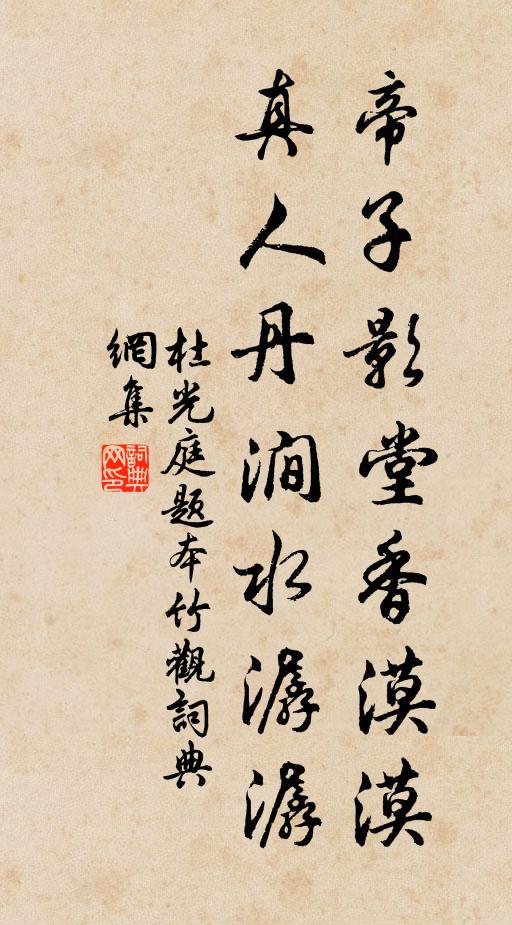 帝子影堂香漠漠
真人丹澗水潺潺
杜光庭題本竹觀詞典
網集
詞典网印